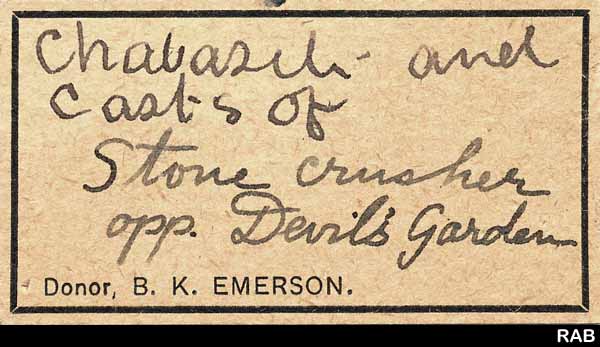 Chabazite and
Casts of
Stone crusher
opp. Devil's Garden
Donor, B. K. EMERSON.
RAB